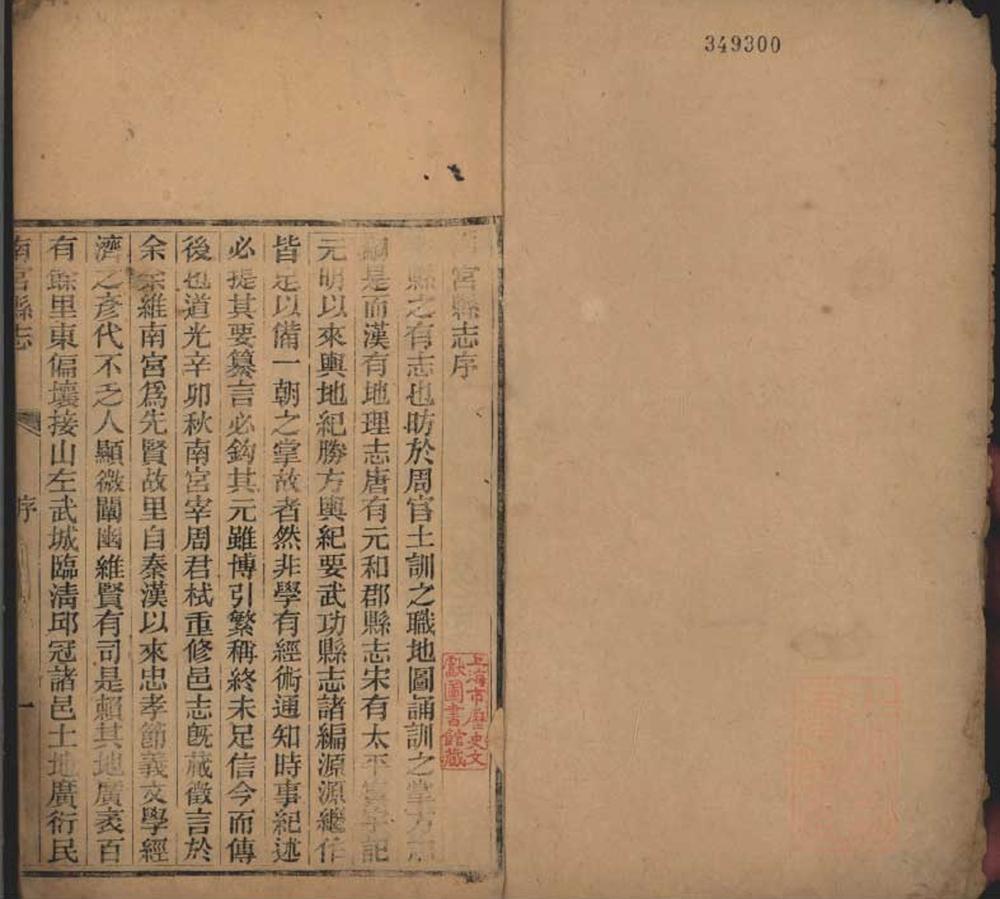 349300
南宮縣志序
縣之有志也昉於周官土訓之職地圖誦訓之掌方志
嗣是而漢有地理志唐有元和郡縣志宋有太平寰宇記
元明以來輿地紀勝方輿紀要武功縣志諸編源源繼作
皆足以備一朝之掌故者然非學有經術通知時事紀述
必提其要纂言必鈎其元雖博引繁稱終未足信今而傳
後也道光辛卯秋南宮宰周君栻重修邑志旣蕆徵言於
余余維南宮爲先賢故里自秦漢以來忠孝節義文學經
濟之彥代不乏人顯微闡幽維賢有司是賴其地廣袤百
有餘里東偏壤接山左武城臨淸邱冠諸邑土地廣衍民
南宮縣志 序 一
上海市歷史文獻圖書館藏